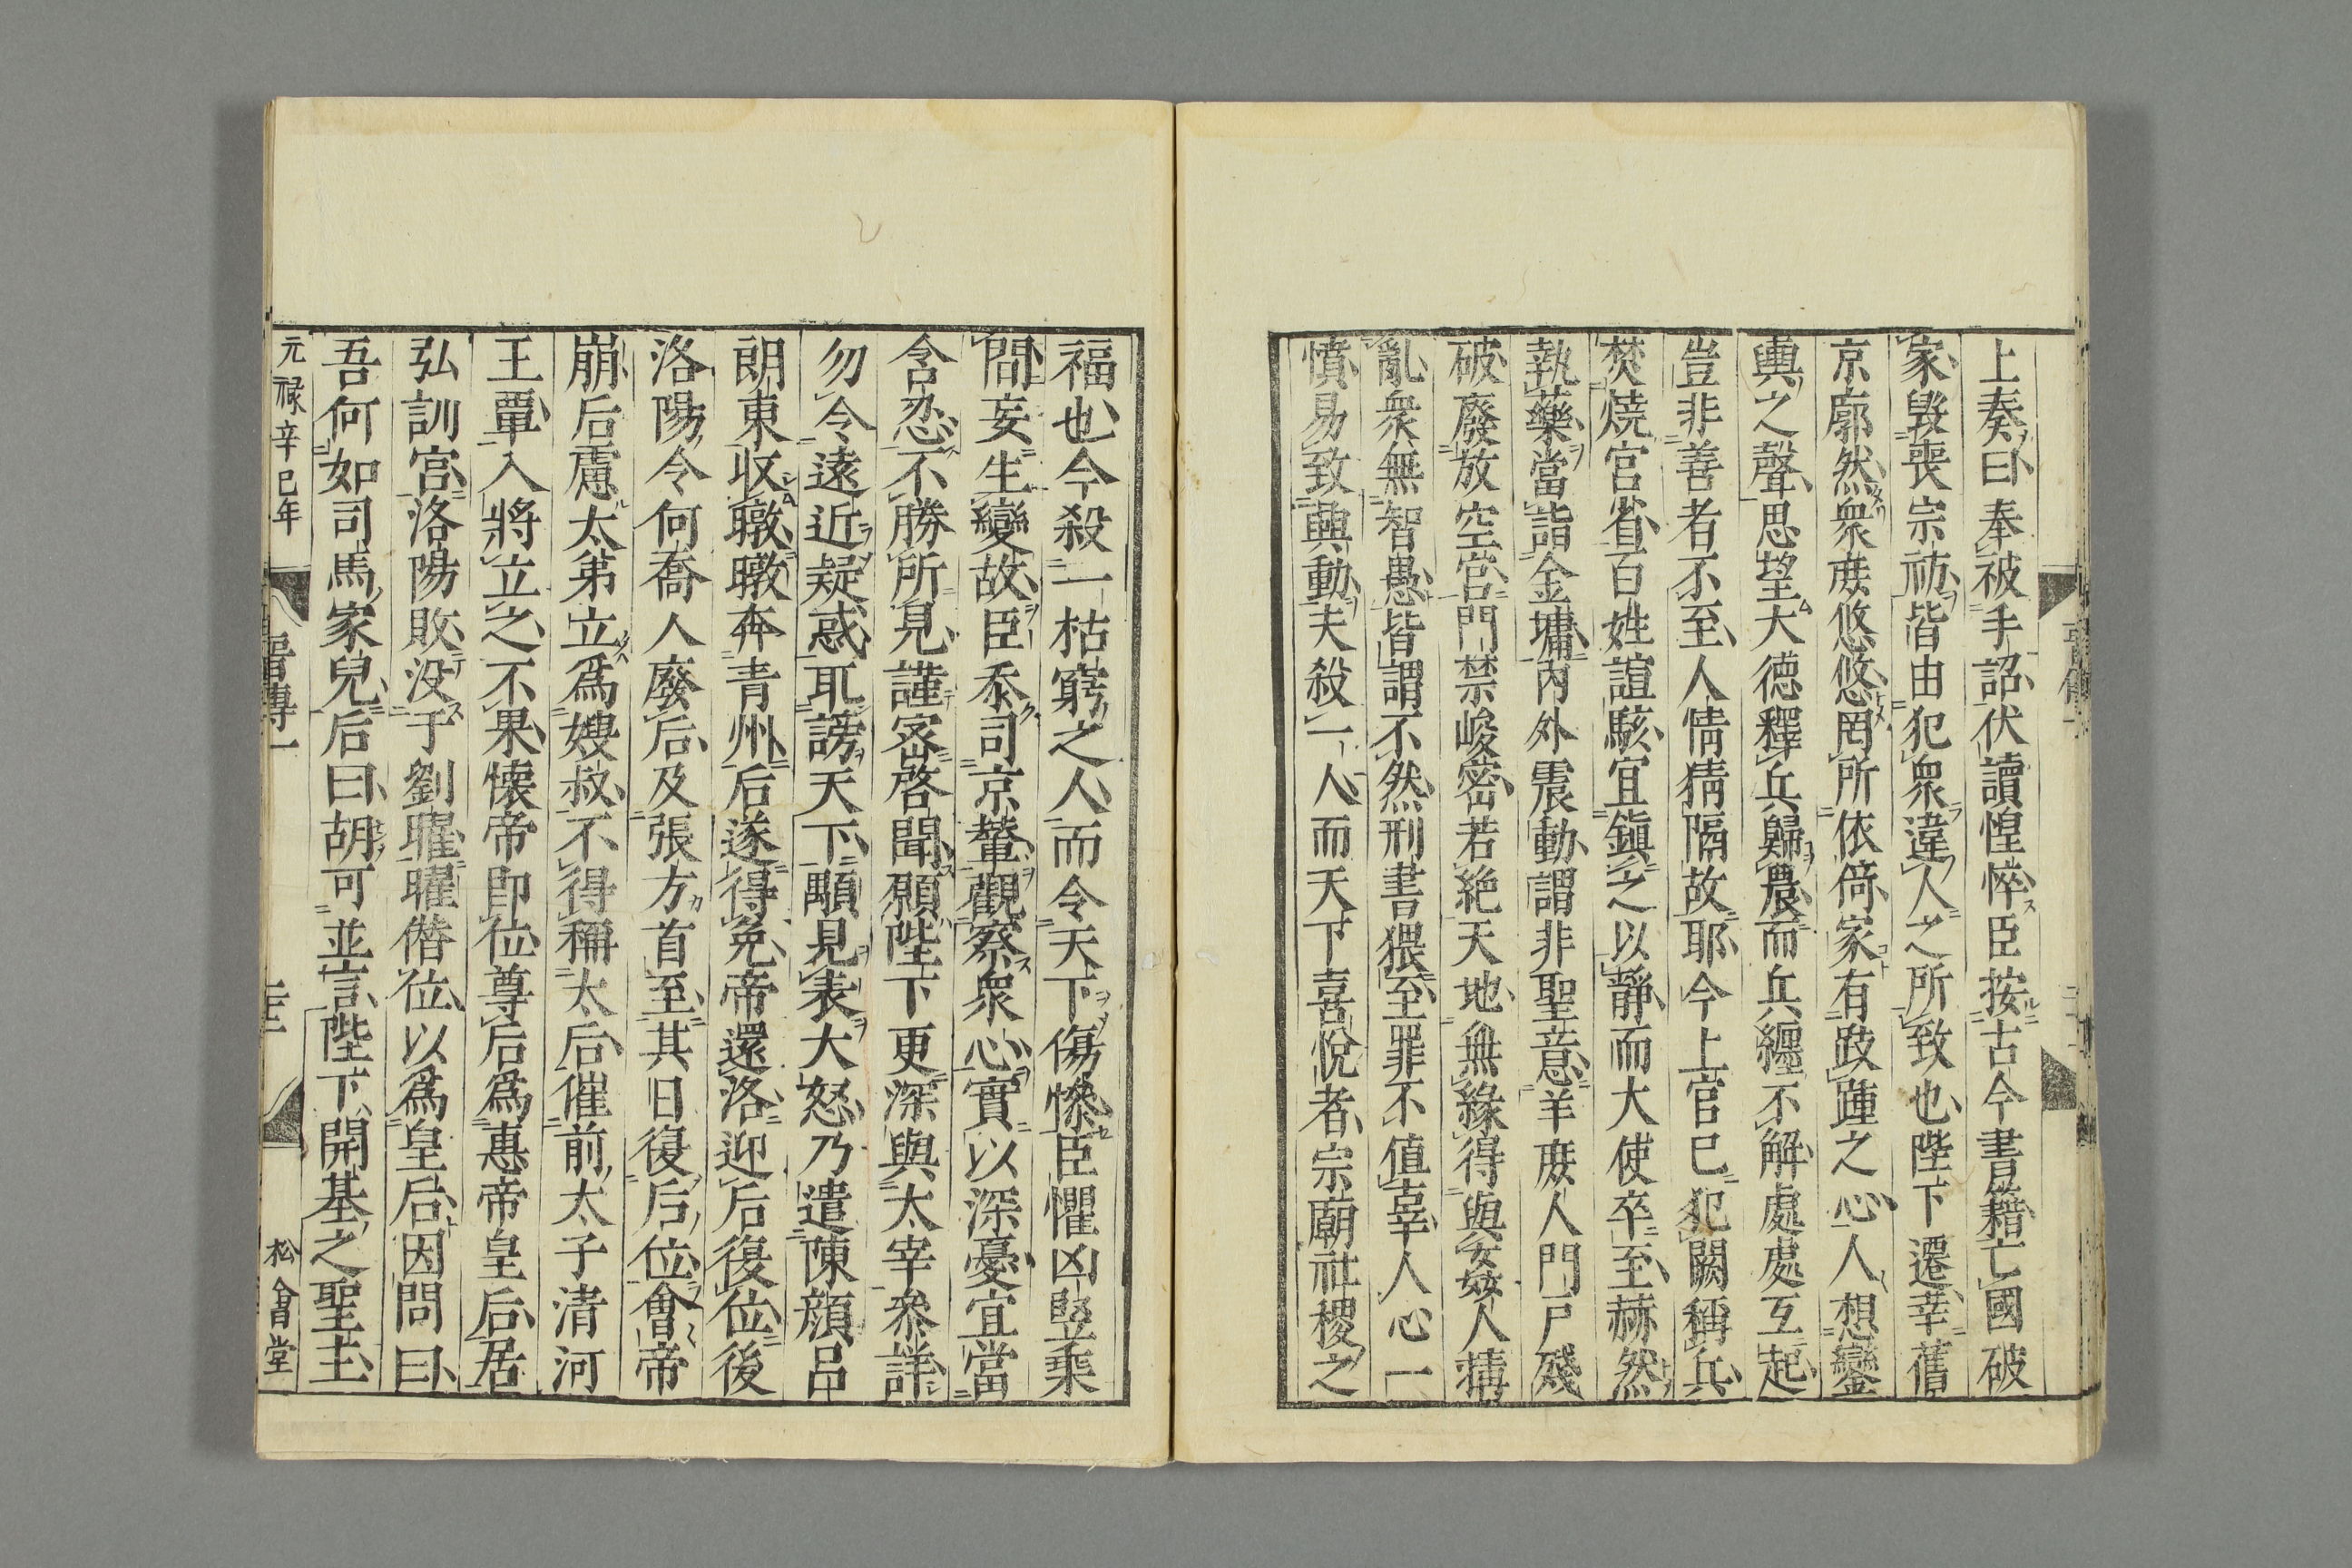 上奏曰奉被手詔伏讀惶悴臣按古今書籍亡國破
家毀喪宗祊皆由犯衆違人之所致也陛下遷幸舊
京廓然衆庶悠悠罔所依倚家有跂踵之心人想鑾
輿之聲思望大德釋兵歸農而兵纏不解處處互起
豈非善者不至人情猜隔故耶今上官巳犯闕稱兵
焚燒宮省百姓諠駭宜鎭之以靜而大使卒至赫然
執藥當詣金墉內外震動謂非聖意羊庶人門戸殘
破廢放空宮門禁峻密若絶天地無緣得與姦人搆
亂衆無智愚皆謂不然刑書猥至罪不値辜人心一
憤易致興動夫殺一人而天下喜悅者宗廟社稷之
福也今殺一枯窮之人而令天下傷慘臣懼凶豎乘
間妄生變故臣忝司京輦觀察衆心實以深憂宜當
含忍不勝所見謹密啓聞願陛下更深與太宰參詳
勿令遠近疑惑耴謗天下顒見表大怒乃遣陳顔呂
朗東收暾暾奔青州后遂得免帝還洛迎后復位後
洛陽令何喬人廢后及張方首至其日復后位會帝
崩后慮太第立爲嫂叔不得稱太后催前太子清河
王覃入將立之不果懷帝卽位尊后爲惠帝皇后居
弘訓宮洛陽敗没于劉曜曜僣位以爲皇后因問曰
吾何如司馬家兒后曰胡可並言陛下開基之聖主
元禄辛巳年
晉傳一
松會堂